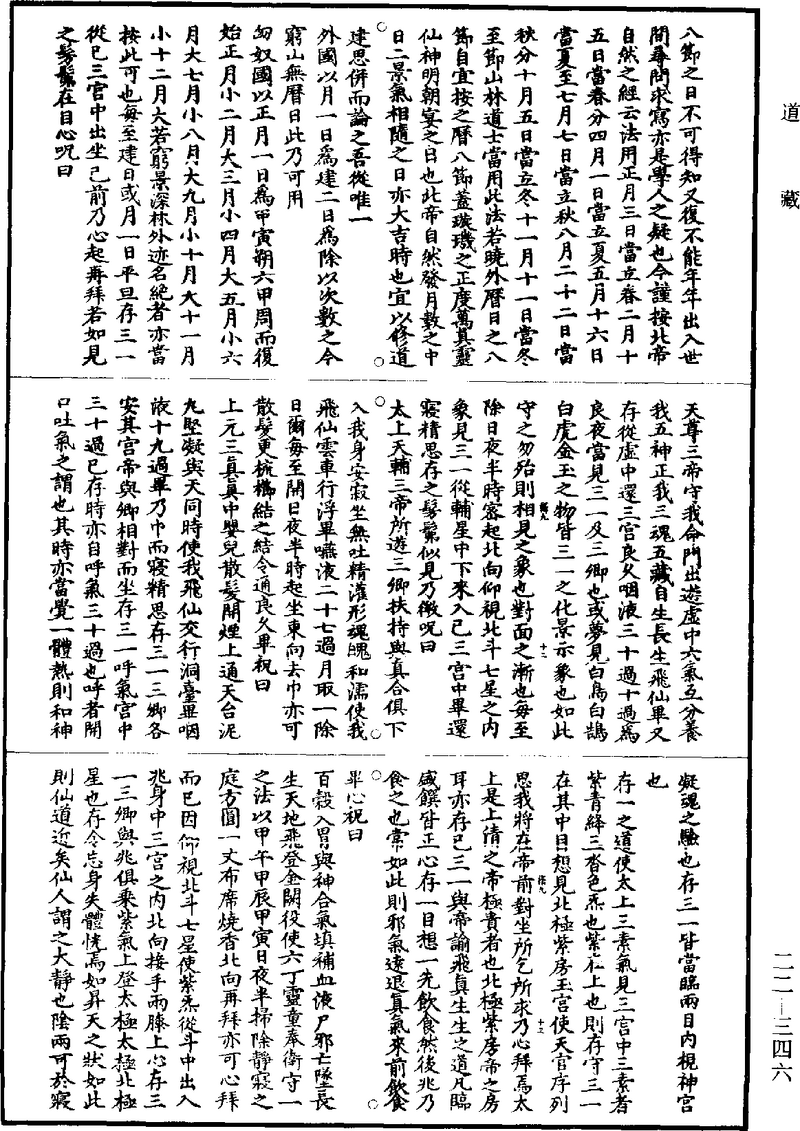 道藏
八節之日不可得知又復不能年年出入世
間尋問求寫亦是學人之疑也今謹按北帝
自然之經云法用正月三日當立春二月十
五日當春分四月一日當立夏五月十六日
當夏至七月七日當立秋八月二十二日當
秋分十月五日當立冬十一月十一日當冬
至節山林道士當用此法若曉外曆日之八
節自宜按之曆八節蓋璇璣之正度萬真靈
仙神明朝宴之日也此帝自然發月數之中
日二景氣相隨之日亦大吉時也宜以修道
建思併而論之吾從唯一
外國以月一日為建二日為除以次數之今
窮山無曆日此乃可用
匈奴國以正月一日為甲寅朔六甲周而復
始正月小二月大三月小四月大五月小六
月大七月小八月大九月小十月大十一月
小十二月大若窮景深林外迹名絕者亦當
按此可也每至建日或月一日平旦存三一
從已三宮中出坐己前乃心起再拜若如見
之髣髴在目心呪曰
天尊三帝守我命門出遊虛中六氣互分養
我五神正我三魂五藏自生長生飛仙畢又
存從虛中還三宮良久咽液三十過十過為
良夜當見三一及三卿也或夢見白鳥白鵠
白虎金玉之物皆三一之化景示象也如此
守之勿殆則相見之象也對面之漸也每至
除日夜半時密起北向仰視北斗七星之內
象見三一從輔星中下來入己三宮中畢還
寢精思存之髣髴似見乃微呪曰
太上天輔三帝所遊三卿扶持與真合俱下
入我身安寂坐無吐精灌形魂魄和濡使我
飛仙雲車行浮畢嚥液二十七過月取一除
日爾每至開日夜半時起坐東向去巾亦可
散髮更梳櫛結之結令通良久畢祝曰
上元三真真中嬰兒散髮開煙上通天台泥
丸堅凝與天同時使我飛仙交行洞臺畢咽
液十九過畢乃巾而寢精思存三一三卿各
安其宮帝與卿相對而坐存三一呼氣宮中
三十過已存時亦自呼氣三十過也呼者開
口吐氣之謂也其時亦當覺一體熱則和神
凝魂之驗也存三一皆當臨兩目內視神宮
也
存一之道使太上三素氣見三宮中三素者
紫青絳三沓色炁也紫在上也則存守三一
在其中日想見北極紫房玉宮使天官序列
思我將在帝前對坐所乞所求乃心拜焉太
上是上清之帝極貴者也北極紫房帝之房
耳亦存己三一與帝諭飛真生生之道凡臨
盛饌皆正心存一目想一先飲食然後兆乃
食之也常如此則邪氣遠退真氣來前飲食
畢心祝曰
百穀入胃與神合氣填補血液尸邪亡墜長
生天地飛登金闕役使六丁靈童奉衛守一
之法以甲午甲辰甲寅日夜半掃除靜寢之
庭方圓一丈布席燒香北向再拜亦可心拜
而已因仰視北斗七星使紫炁從斗中出入
兆身中三宮之內北向接手兩膝上心存三
一三卿與兆俱乘紫氣上登太極太極北極
星也存令忘身失體恍焉如昇天之狀如此
則仙道近矣仙人謂之大靜也陰雨可於寢
二二—三四六